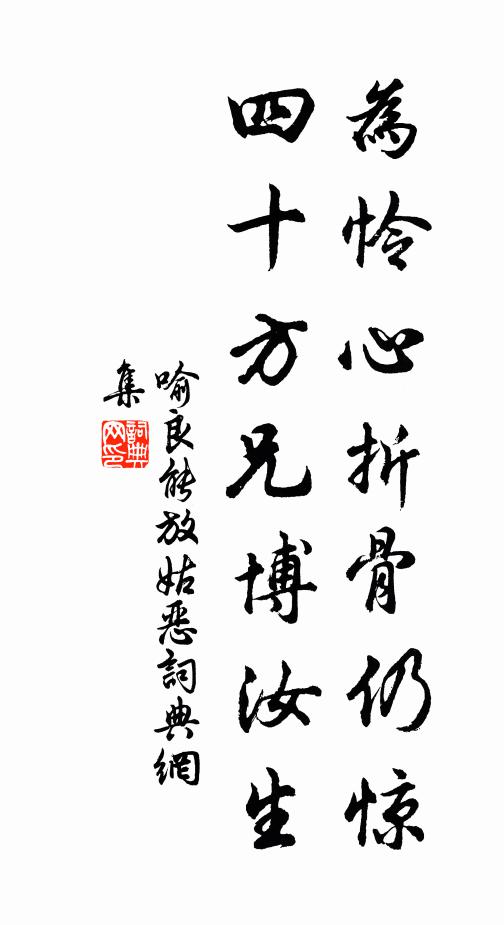 為怜心折骨仍惊
四十方兄博汝生
喻良能放姑恶詞典網
集
詞典網印